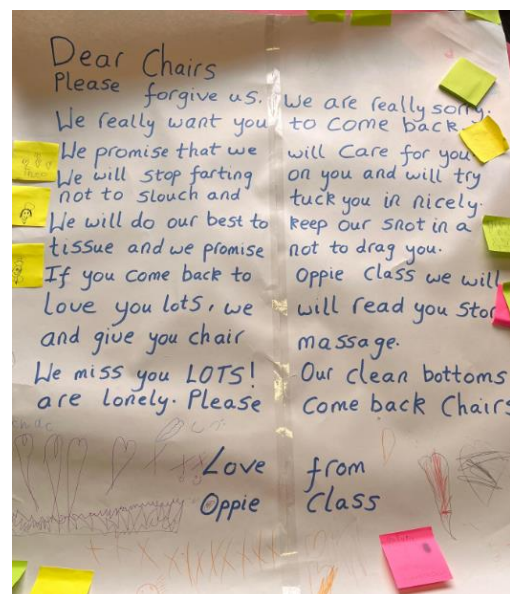 Dear Chairs
Please forgive us. We are really sorry.
We really want you to come back.
We promise that we will care for you
We will stop farting on you and will try
not to slouch and tuck you in nicely.
We will do our best to keep our snot in a
tissue and we promise not to drag you.
If you come back to Oppie Class we will
Love you lots, we will read you
and give you chair massage.
We miss you LOTS! Our clean bottoms
are lonely. Please Come back Chairs
Love from
Oppie Class